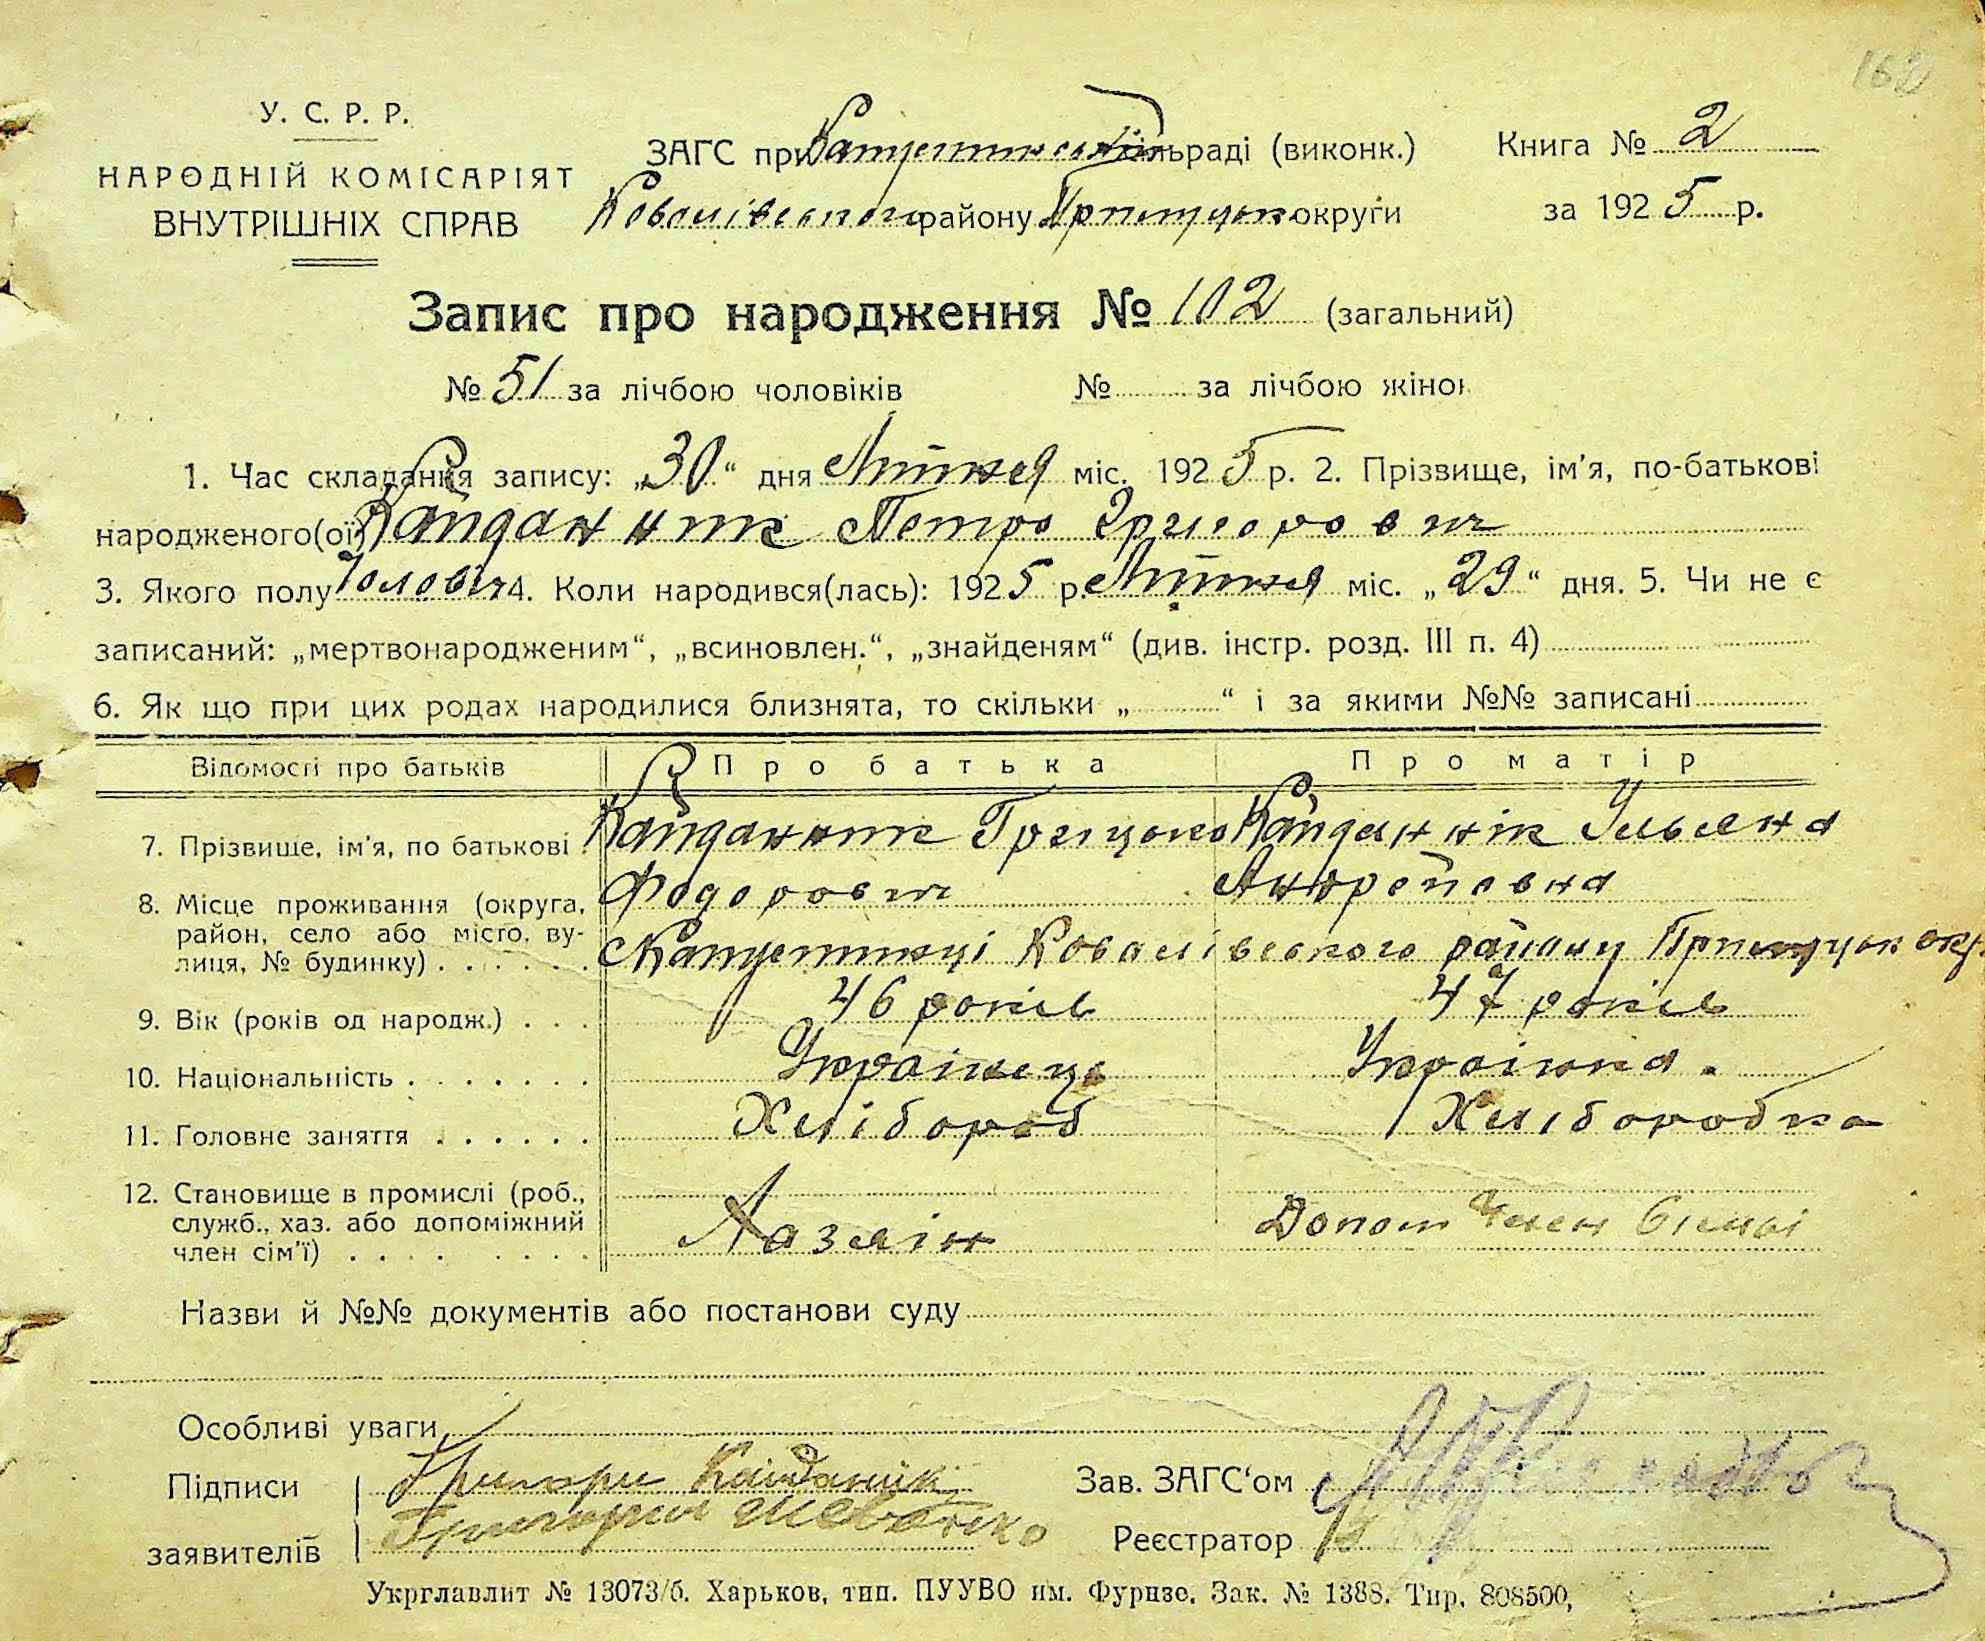 162
У. С. Р. Р.
НАРОДНІЙ КОМІСАРІЯТ
ВНУТРІШНІХ СПРАВ
ЗАГС при Капустинській сільраді (виконк.)
Ковалівського району Прилуцьк округи
Книга № 2
за 1925 р.
Запис про народження № 102 (загальний)
№ 51 за лічбою чоловіків № за лічбою жінок
1. Час складання запису: „30“ дня Липня міс. 1925 р. 2. Прізвище, ім'я, по-батькові
народженого(ої) Кайданник Петро Григорович
3. Якого полу Чоловіч 4. Коли народився(лась): 1925 р. Липня міс. „29“ дня. 5. Чи не є
записаний: „мертвонародженим“, „всиновлен.“, „знайденям“ (див. інстр. розд. III п. 4)
6. Як що при цих родах народилися близнята, то скільки „ “ і за якими №№ записані
Відомості про батьків Про батька Про матір
7. Прізвище, ім'я, по батькові Кайданник Грицько Кайданнік Ульяна
Федорович Андреївна
8. Місце проживання (округа,
район, село або місто, ву-
лиця, № будинку) с Капустинці Ковалівського району Прилуцьк окр.
9. Вік (років од народж.) 46 років 47 років
10. Національність Українець Українка.
11. Головне заняття Хлібороб Хліборобка
12. Становище в промислі (роб.,
служб., хаз. або допоміжний
член сім'ї) Хазяін Допом Член Сіемьі
Назви й №№ документів або постанови суду
Особливі уваги
Підписи Григори Кайданик
заявителів Григорий Шевченко
Зав. ЗАГС'ом
Реєстратор
Укрглавлит № 13073/б. Харьков, тип. ПУУВО им. Фурнзе. Зак. № 1388. Тир. 808500,